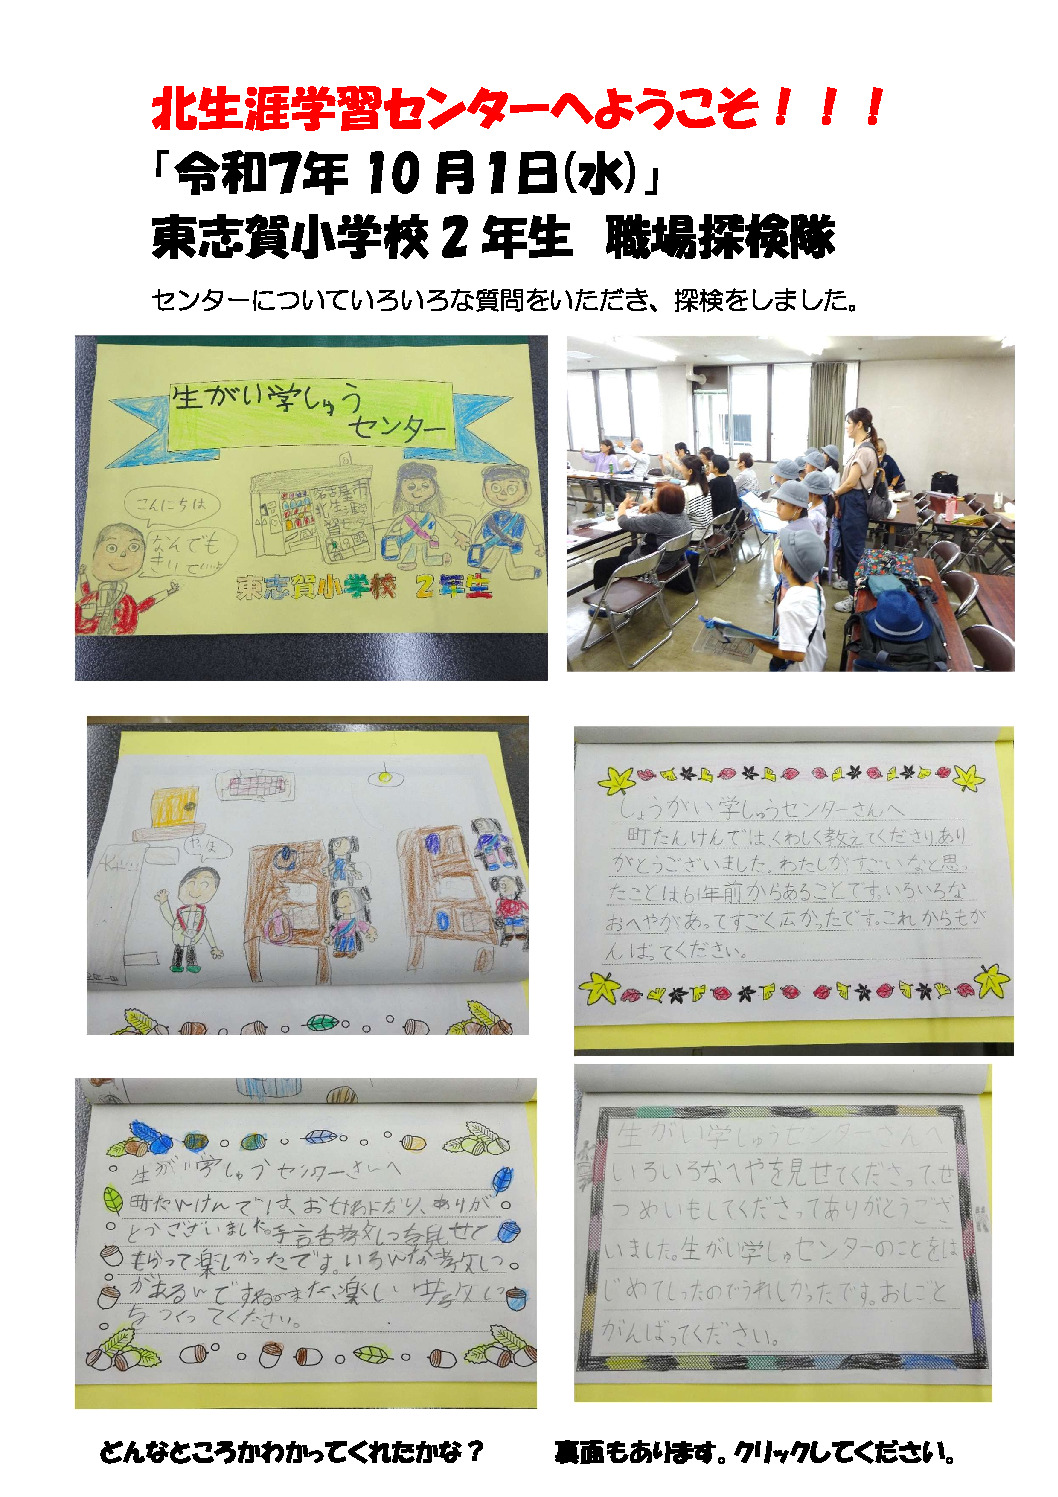 北生涯学習センターへようこそ！！！
「令和7年 10 月1日(水)」
東志賀小学校2年生　職場探検隊
センターについていろいろな質問をいただき、探検をしました。
生がい学しゅう
センター
こんにちは
なんでも
名古屋市
東志賀小学校 2年生
しょうがい学しゅうセンターさんへ
町たんけんでは、くわしく教えてくださりあり
がとうございました。わたしがすごいなと思っ
たことは61年前からあることです。いろいろな
おへやがあってすごく広かったです。これからもが
んばってください。
生がい学しゅうセンターさんへ
町たんけんでは、おせわになり、ありが
とうございました。手言舌教しつを見せて
もらって楽しかったです。いろんな教しつ
があるんですね。また、楽しい
をつくってください。
生がい学しゅうセンターさんへ
いろいろなへやを見せてくださって、せ
つめいもしてくださってありがとうござ
いました。生がい学しゅうセンターのことをは
じめてしったのでうれしかったです。おしごと
がんばってください。
どんなところかわかってくれたかな？
裏面もあります。クリックしてください。